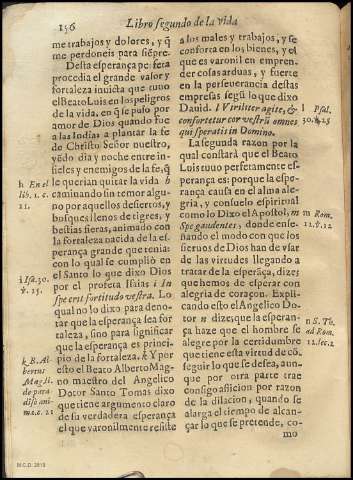 156
Libro segundo de la vida
me trabajos y dolores, y q̃
me perdoneis para siẽpre.
Desta esperança perfeta
procedia el grande valor y
fortaleza invicta que tuuo
el Beato Luis en los peligros
de la vida, en q̃ se puso por
amor de Dios quando fue
a las Indias a plantar la fe
de Christo Señor nuestro,
yẽdo dia y noche entre in-
fieles y enemigos de la fe, q̃
le querian quitar la vida h
caminando sin temor algu-
no por aquellos desiertos, y
bosques llenos de tigres, y
bestias fieras, animado con
la fortaleza nacida de la es-
perança grande que tenia:
con lo qual se cumpliò en
el Santo lo que dixo Dios
por el profeta Isaias i In
spe erit fortitudo vestra. Lo
qual no lo dixo para deno-
tar que la esperança sea for
taleza, sino para significar
que la esperança es princi-
pio de la fortaleza. k Y por
esto el Beato Alberto Mag-
no maestro del Angelico
Dotor Santo Tomas dixo
que tiene argumento claro
de su verdadera esperança
el que varonilmente resiste
h En el
lib. 1. c.
21.
i Isa. 30.
℣. 15.
k B. Al-
bertus
Mag. li.
de para
diso ani-
mæ c. 21
a los males y trabajos, y se
conforta en los bienes, y el
que es varonil en empren-
der cosas arduas, y fuerte
en la perseverancia destas
empresas segũ lo que dixo
Dauid. l Viriliter agite, &
confortetur cor vestrũ omnes
qui speratis in Domino.
La segunda razon por la
qual constarà que el Beato
Luis tuuo perfetamente es-
perança es: porque la espe-
rança causa en el alma ale-
gria, y consuelo espiritual
como lo Dixo el Apostol, m
Spe gaudentes, donde ense-
ñando el modo con que los
sieruos de Dios han de vsar
de las virtudes llegando a
tratar de la esperãça, dizes
que hemos de esperar con
alegria de coraçon. Expli-
cando esto el Angelico Do-
tor n dize, que la esperan-
ça haze que el hombre se
alegre por la certidumbre
que tiene esta virtud de cõ-
seguir lo que se desea, aun-
que por otra parte trae
consigo aflicion por razon
de la dilacion, quando se
alarga el tiempo de alcan-
çar lo que se pretende, co-
mo
l Psal.
30. ℣. 25
m Rom.
12. ℣. 12
n S. To.
ad Rom.
12. lec. 2
M.C.D. 2018